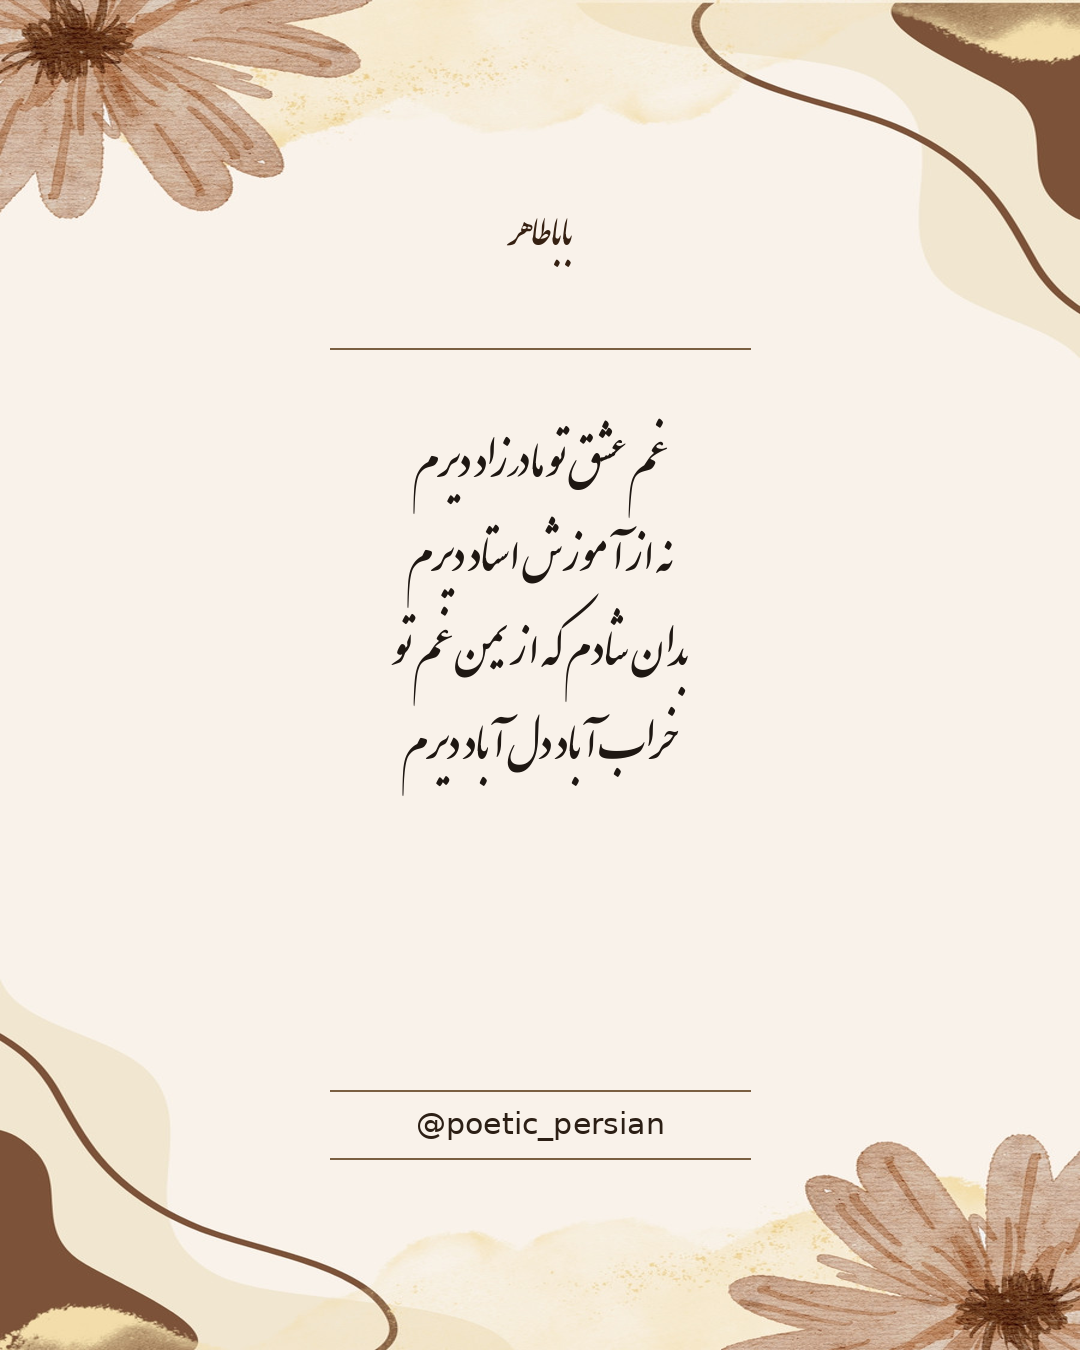 باباطاهر
غم عشق تو مادرزاد دیرم
نه از آموزش استاد دیرم
بدان شادم که از یمن غم تو
خراب‌آباد دل آباد دیرم
@poetic_persian